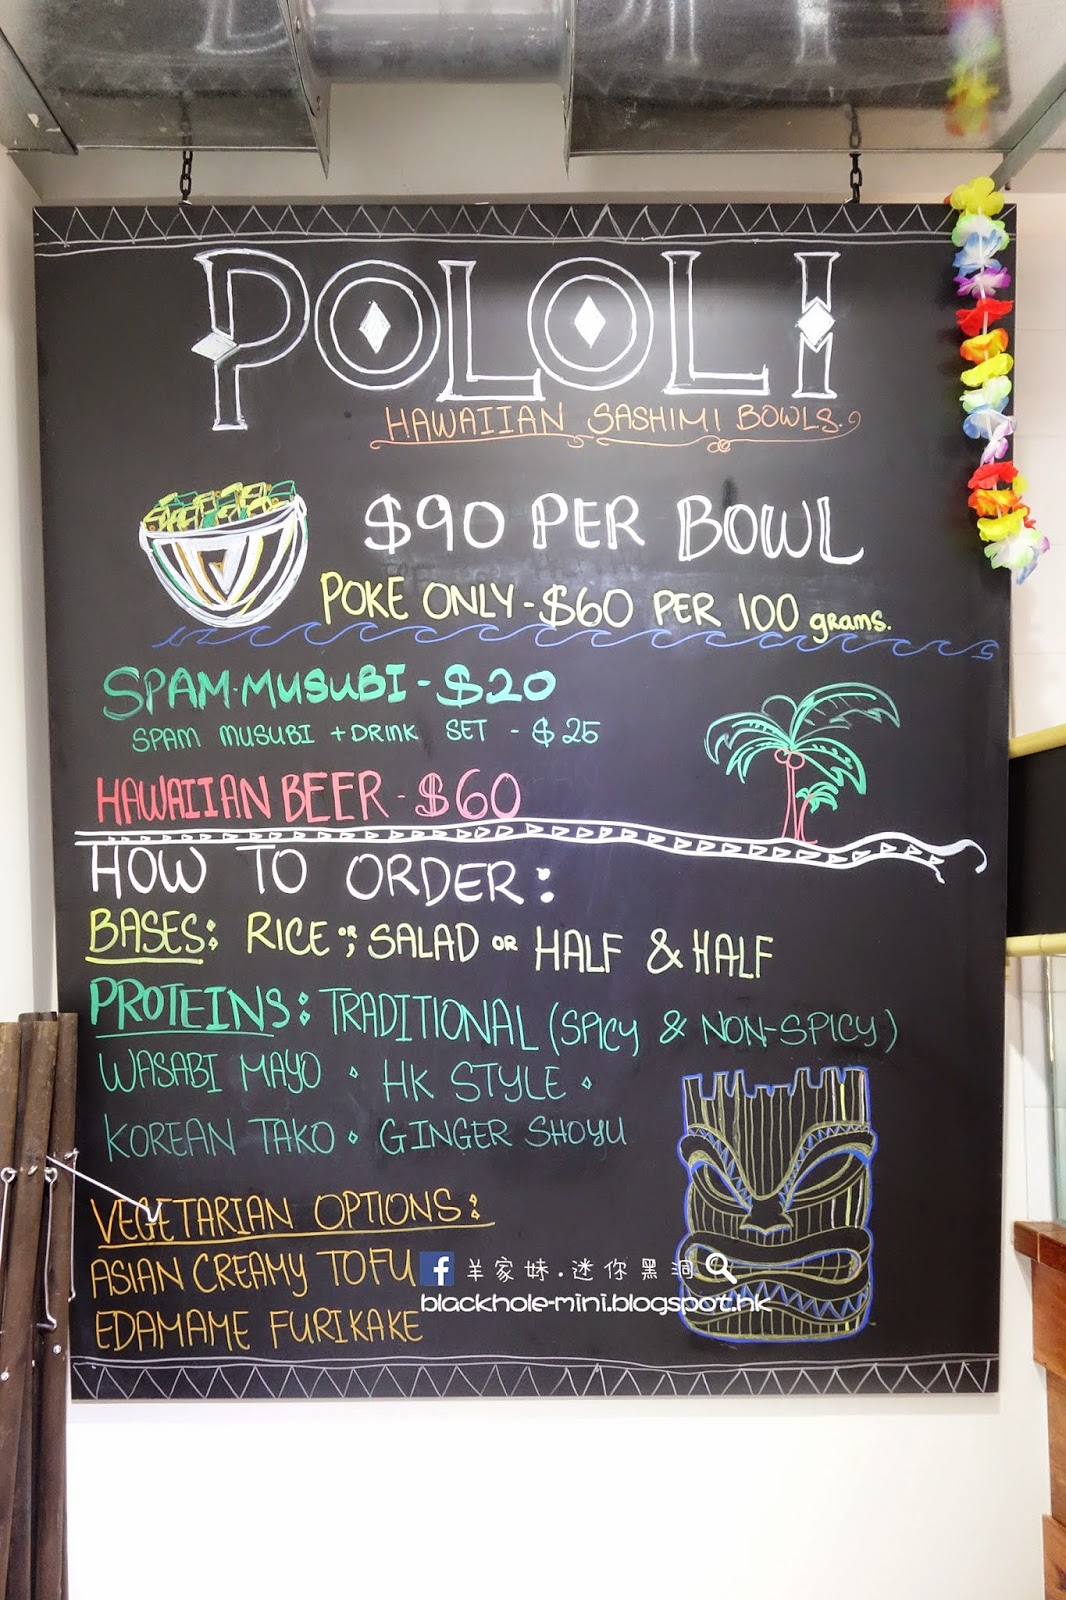 POLOLI
HAWAIIAN SASHIMI BOWLS.
$90 PER BOWL
POKE ONLY - $60 PER 100 grams.
SPAM.MUSUBI - $20
SPAM MUSUBI + DRINK SET - $25
HAWAIIAN BEER - $60
HOW TO ORDER:
BASES: RICE OR; SALAD OR HALF & HALF
PROTEINS: TRADITIONAL (SPICY & NON-SPICY)
WASABI MAYO • HK STYLE •
KOREAN TAKO • GINGER SHOYU
VEGETARIAN OPTIONS:
ASIAN CREAMY TOFU
EDAMAME FURIKAKE
f 羊家妹.迷你黑洞
blackhole-mini.blogspot.hk